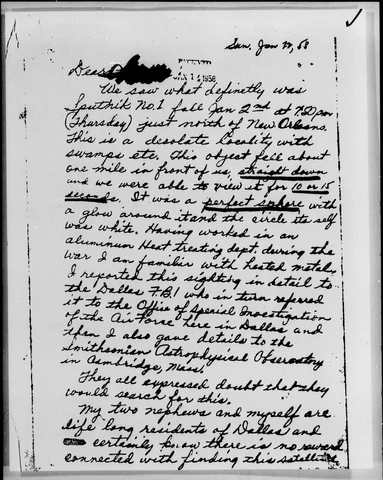 Sun. Jan 58
Dear
RECEIVED
JAN 14 1958
We saw what definetly was
Sputnik No. 1 fall Jan 2nd at 7:20 pm
(Thursday) just north of New Orleans.
This is a desolate locality with
swamps etc, this object fell about
one mile in front of us, straight down
and we were able to view it for 10 or 15
seconds. It was a perfect sphere with
a glow around it and the circle its self
was white. Having worked in an
aluminum Heat treating dept. during the
war I am familiar with heated metal.
I reported this sighting in detail to
the Dallas F.B.I who in turn referred
it to the Office of Special Investigation
of the Air Force here in Dallas and
then I also gave details to the
Smithsonian Astrophysical Observatory
in Cambridge, Mass.
They all expressed doubt that they
would search for this.
My two nephews and myself are
life long residents of Dallas and
certainly know there is no reward
connected with finding this satellite